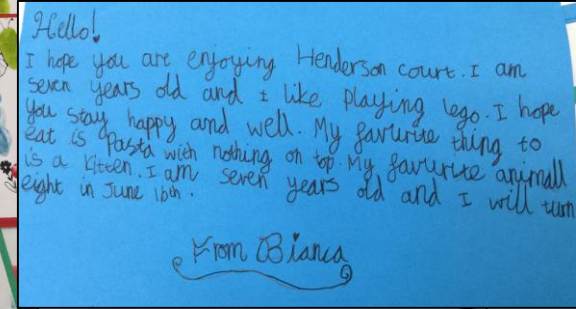 Hello!
I hope you are enjoying Henderson court. I am
seven years old and I like playing lego. I hope
you stay happy and well. My favurite thing to
eat is Pasta with nothing on top. My favurite animall
is a kitten. I am seven years old and I will turn
eight in June 16th.
From Bianca